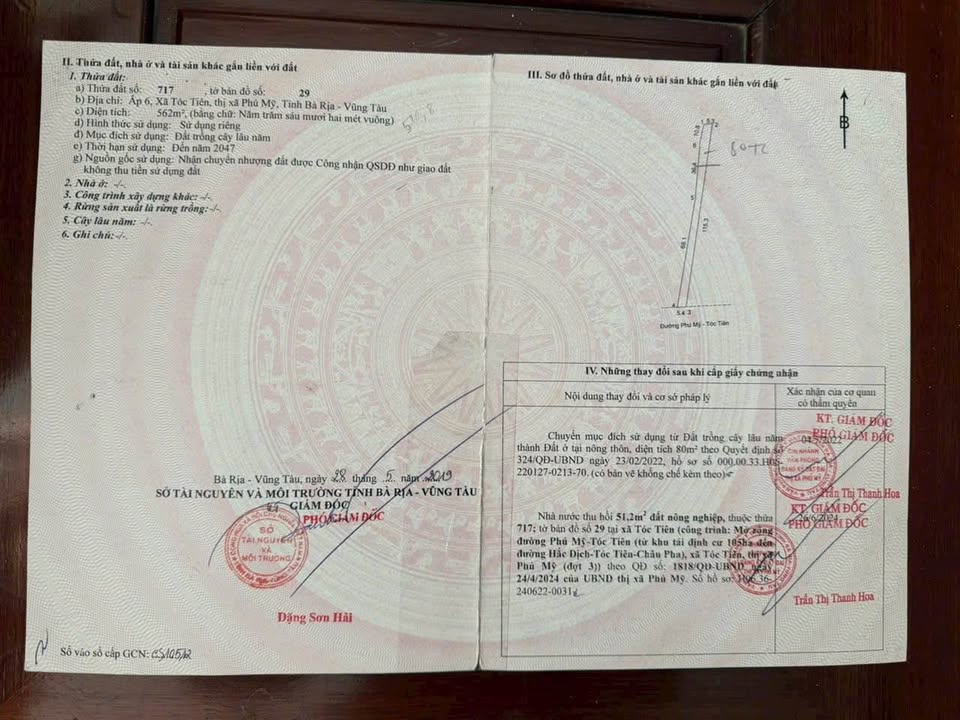 II. Thửa đất, nhà ở và tài sản khác gắn liền với đất
1. Thửa đất:
a) Thửa đất số: 717 , tờ bản đồ số: 29
b) Địa chỉ: Ấp 6, Xã Tóc Tiên, thị xã Phú Mỹ, Tỉnh Bà Rịa - Vũng Tàu
c) Diện tích: 562m², (bằng chữ: Năm trăm sáu mươi hai mét vuông)
510,8
d) Hình thức sử dụng: Sử dụng riêng
đ) Mục đích sử dụng: Đất trồng cây lâu năm
e) Thời hạn sử dụng: Đến năm 2047
g) Nguồn gốc sử dụng: Nhận chuyển nhượng đất được Công nhận QSDĐ như giao đất
không thu tiền sử dụng đất
2. Nhà ở: -/-
3. Công trình xây dựng khác: -/-
4. Rừng sản xuất là rừng trồng: -/-
5. Cây lâu năm: -/-
6. Ghi chú: -/-
Bà Rịa - Vũng Tàu, ngày 28 tháng 5 năm 2019
SỞ TÀI NGUYÊN VÀ MÔI TRƯỜNG TỈNH BÀ RỊA - VŨNG TÀU
GIÁM ĐỐC
PHÓ GIÁM ĐỐC
SỞ
TÀI NGUYÊN
VÀ
MÔI TRƯỜNG
Đặng Sơn Hải
Số vào sổ cấp GCN:
III. Sơ đồ thửa đất, nhà ở và tài sản khác gắn liền với đất
B
1
5.3
2
6
80TC
5
68.1
115.3
4
5.4
3
Đường Phú Mỹ - Tóc Tiên
IV. Những thay đổi sau khi cấp giấy chứng nhận
Nội dung thay đổi và cơ sở pháp lý
Xác nhận của cơ quan
có thẩm quyền
Chuyển mục đích sử dụng từ Đất trồng cây lâu năm
thành Đất ở tại nông thôn, diện tích 80m² theo Quyết định số
324/QĐ-UBND ngày 23/02/2022, hồ sơ số 000.00.33.H06-
220127-0213-70. (có bản vẽ khống chế kèm theo)
KT. GIÁM ĐỐC
PHÓ GIÁM ĐỐC
CHI NHÁNH
VĂN PHÒNG
ĐĂNG KÝ ĐẤT ĐAI
THỊ XÃ PHÚ MỸ
Trần Thị Thanh Hoa
Nhà nước thu hồi 51,2m² đất nông nghiệp, thuộc thửa
717; tờ bản đồ số 29 tại xã Tóc Tiên (công trình: Mở rộng
đường Phú Mỹ-Tóc Tiên (từ khu tái định cư 105ha đến
đường Hắc Dịch-Tóc Tiên-Châu Pha), xã Tóc Tiên, thị xã
Phú Mỹ (đợt 3)) theo QĐ số: 1818/QĐ-UBND ngày
24/4/2024 của UBND thị xã Phú Mỹ. Số hồ sơ: H06.36-
240622-0031
KT. GIÁM ĐỐC
26/6/2024
PHÓ GIÁM ĐỐC
Trần Thị Thanh Hoa